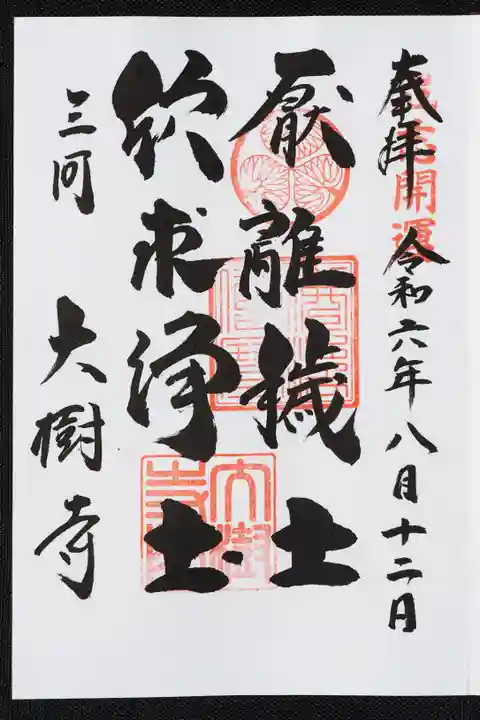 奉拝 令和六年八月十二日
開運
厭離穢土
欣求浄土
大樹寺
三河 大樹寺